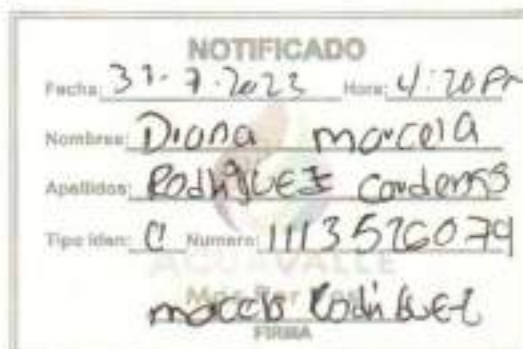 NOTIFICADO
Fecha: 31-7-2023 Hora: 4:20 Pm
Nombres: Diana marcela
Apellidos: Rodriguez Cardenas
Tipo Iden: C Numero: 1113526074
ACUAVALLE
marcela Rodriguez
FIRMA